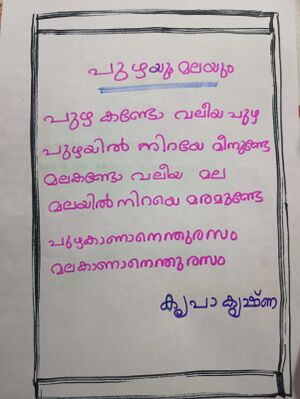 പുഴയും മലയും
പുഴ കണ്ടോ വലിയ പുഴ
പുഴയിൽ നിറയേ മീനുണ്ടേ
മലകണ്ടോ വലിയ മല
മലയിൽ നിറയെ മരമുണ്ടേ
പുഴകാണാനെന്തുരസം
മലകാണാനെന്തുരസം
കൃപാ കൃഷ്ണ